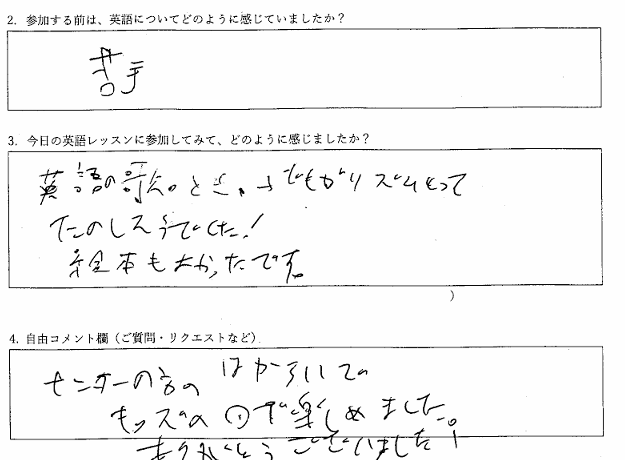 2. 参加する前は、英語についてどのように感じていましたか？
苦手
3. 今日の英語レッスンに参加してみて、どのように感じましたか？
英語の歌のとき、子どもがリズムとって
たのしそうでした！
絵本もよかったです。
）
4. 自由コメント欄（ご質問・リクエストなど）
センターの
キッズの ので楽しめました。
ありがとうございました！